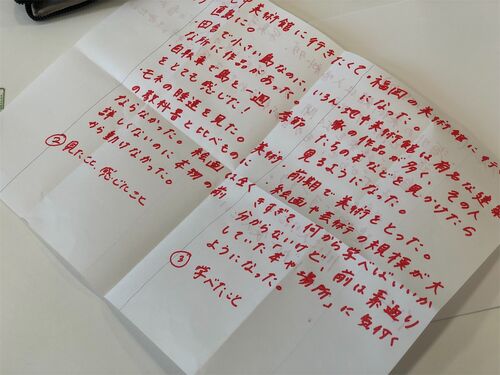 中美術館に行きたくて、
直島に。
田舎で小さい島なのに
な所に作品があった。
自転車で島を一週、季節
をとても感じた!
モネの睡蓮を見た。美術
の教科書と比べもの
ならなかった。絵画
詳しくないのに本物の前
から動けなかった。
②見たこと感じたこと
福岡の美術館に
になった。
地中美術館は有名な建
家の作品が多く、その人
本などを見かけたら
見るようになった。
前期で美術をとった。
絵画、芸術の規模が大
きすぎて何から学べばいいか
分からないけど、前は素通り
していた「本や場所」に気付く
ようになった。
③学べたこと